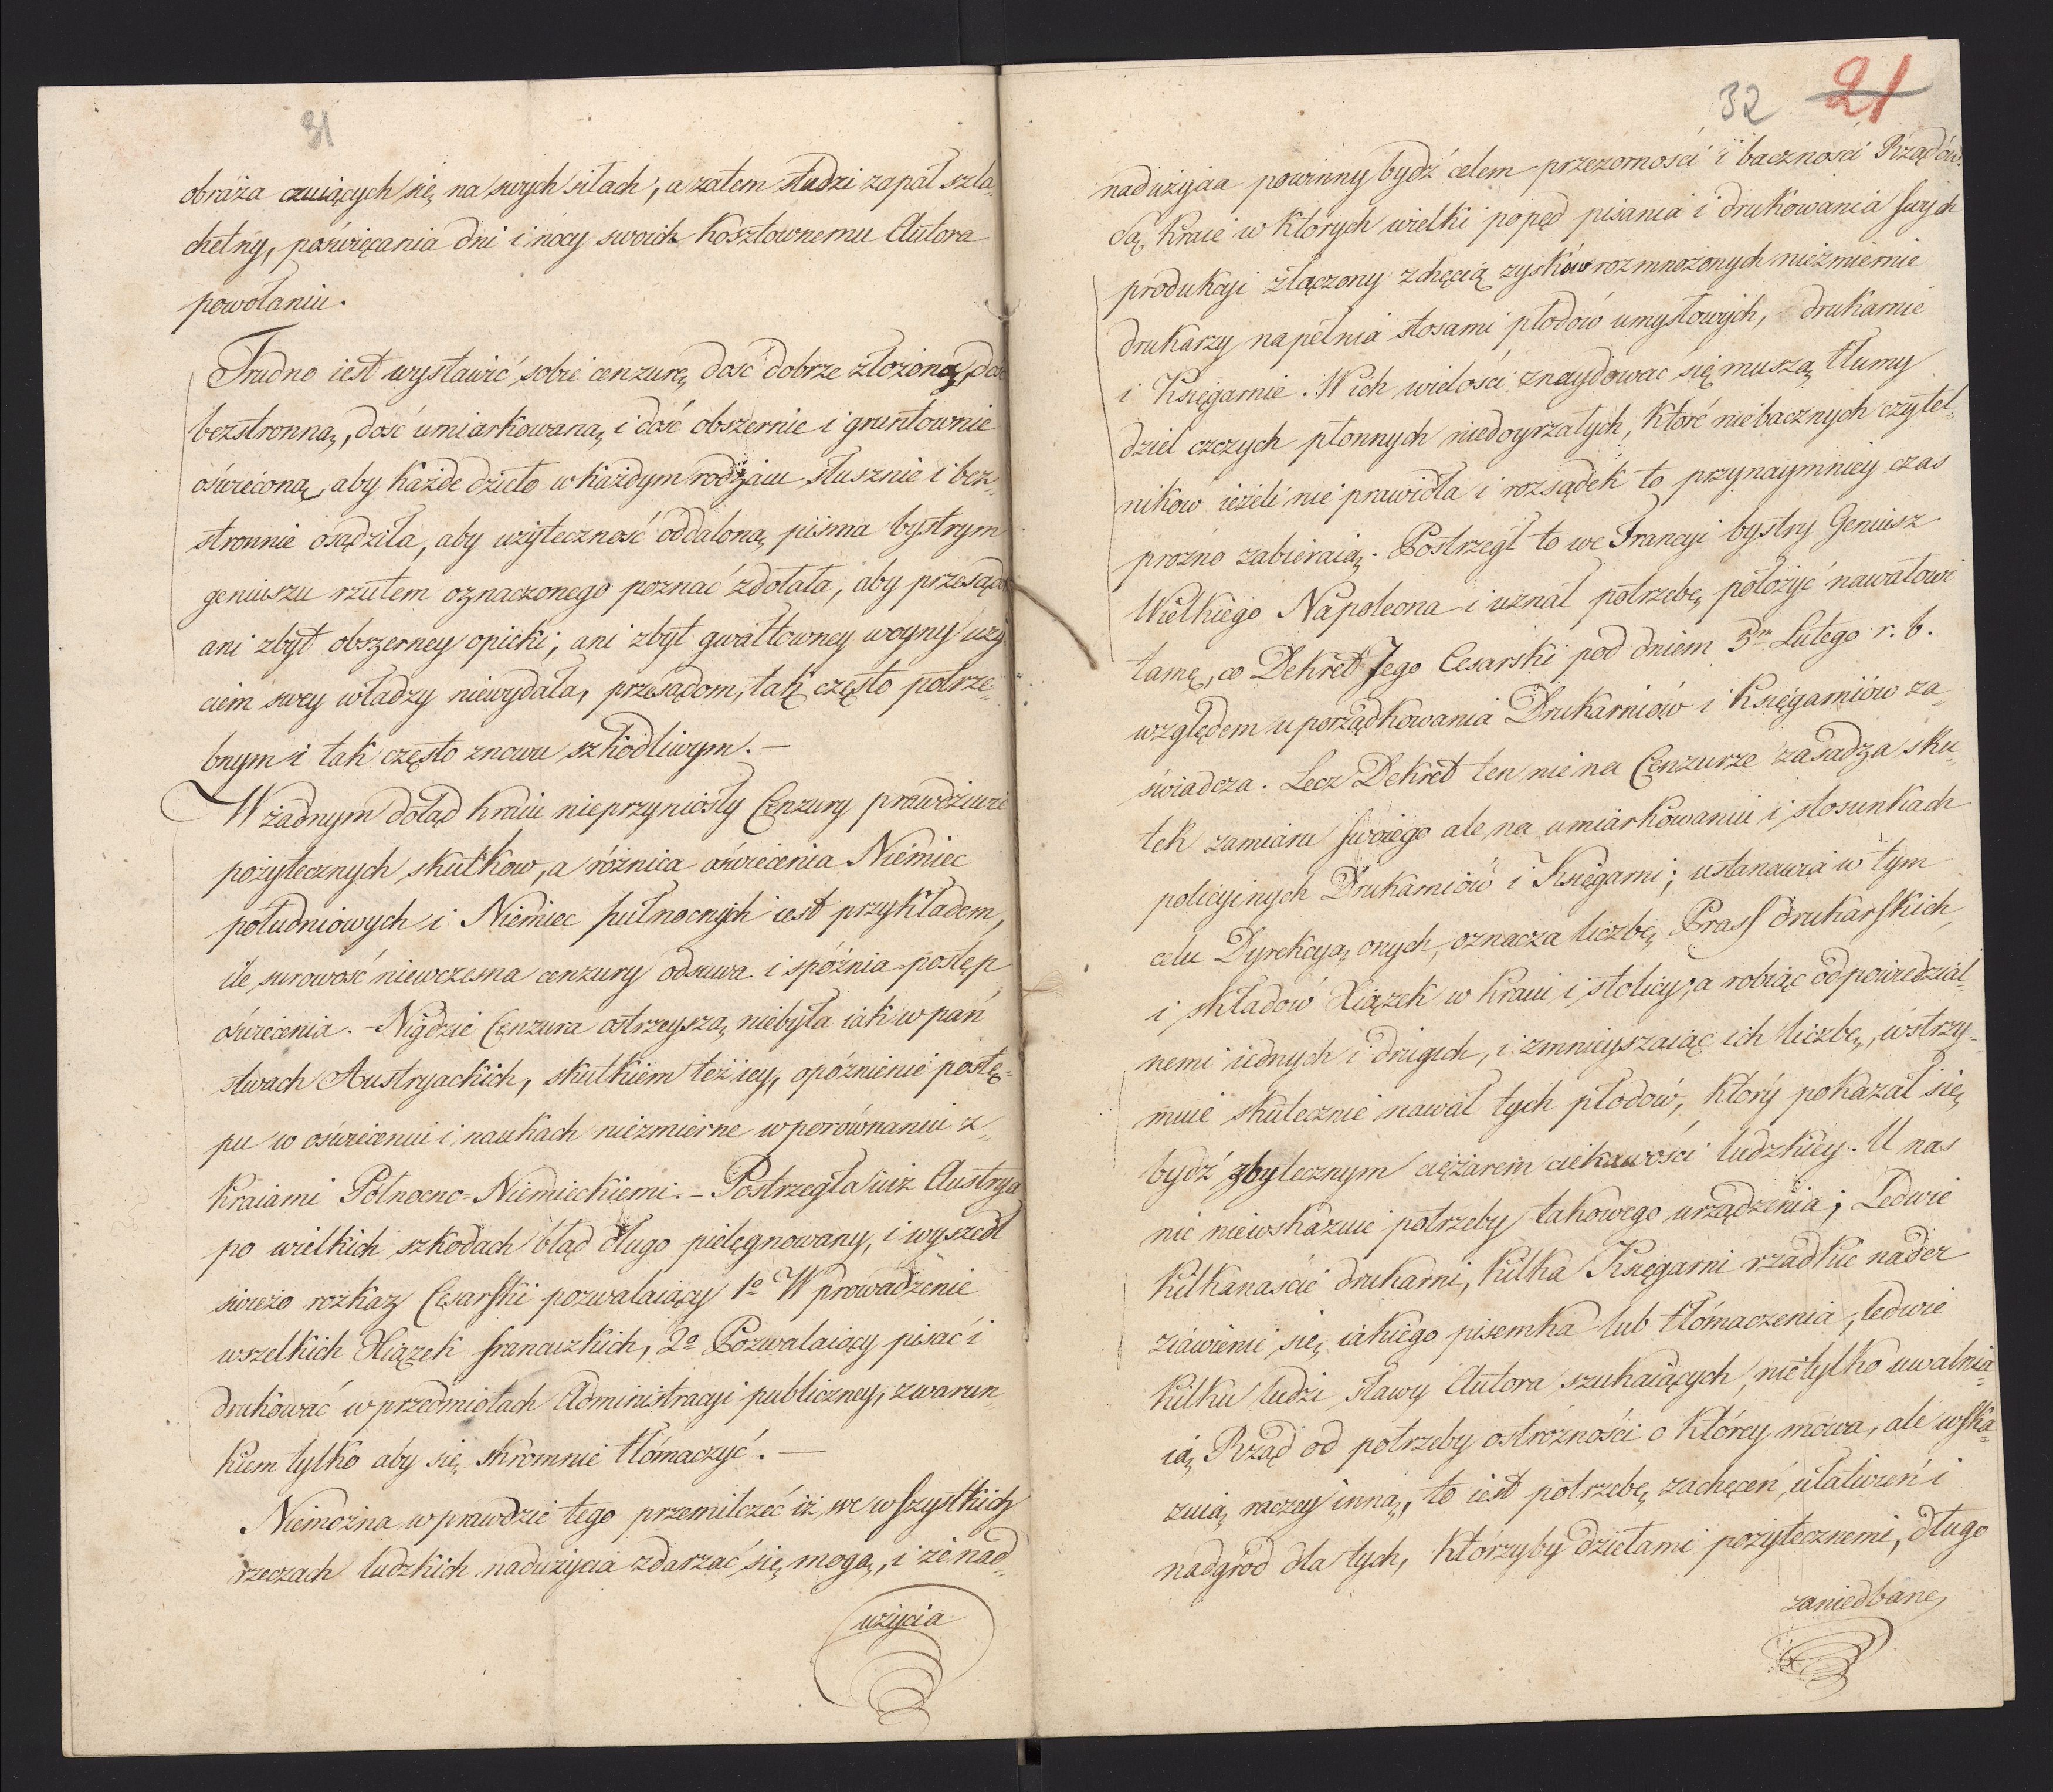 31
obraża czuiących się na swych siłach, a zatem studzi zapał szla-
chetny, poświęcania dni i nocy swoich kosztownemu Autora
powołaniu.
Trudno iest wystawić sobie cenzurę dość dobrze złożoną, dość
bezstronną, dość umiarkowaną i dość obszernie i gruntownie
oświeconą, aby każde dzieło w każdym rodzaiu słusznie i bez-
stronnie osądziła, aby użyteczność oddaloną pisma bystrym
geniuszu rzutem oznaczonego poznać zdołała, aby przesądo
ani zbyt obszerney opieki, ani zbyt gwałtowney woyny uży
ciem swey władzy niewydała, przesądom, tak często potrze-
bnym i tak często znowu szkodliwym. —
W żadnym dotąd kraiu nieprzyniosły Cenzury prawdziwie
pożytecznych skutkow, a różnica oświecenia Niemiec
południowych i Niemiec pułnocnych iest przykładem,
ile surowość niewczesna cenzury odsuwa i spóźnia postęp
oświecenia. - Nigdzie Cenzura ostrzeyszą niebyła iak w pań
stwach Austryackich, skutkiem też iey, opóźnienie postę-
pu w oświeceniu i naukach niezmierne w porównaniu z
kraiami Połnocno-Niemieckiemi. - Postrzegła iuż Austrya
po wielkich szkodach błąd długo pielęgnowany, i wyszedł
świeżo rozkaz Cesarski pozwalaiący 1º Wprowadzenie
wszelkich Xiążek francuzkich, 2º Pozwalaiący pisać i
drukować w przedmiotach Administracyi publiczney, z warun
kiem tylko aby się skromnie tłómaczyć. —
Niemożna wprawdzie tego przemilczeć iż we wszystkich
rzeczach ludzkich nadużycia zdarzać się mogą, i że nad-
użycia
32 21
nadużycia powinny bydź celem przezorności i baczności Rządów.
Są kraie w których wielki popęd pisania i drukowania swych
produkcji złączony z chęcią zysków rozmnożonych niezmiernie
drukarzy napełnia stosami płodów umysłowych, drukarnie
i Księgarnie. W ich wielości znaydować się muszą tłumy
dzieł czczych płonnych niedoyrzałych, które niebacznych czytel-
nikow ieżeli nie prawidła i rozsądek to przynaymniey czas
prozno zabieraią. Postrzegł to we Francyi bystry Geniusz
Wielkiego Napoleona i uznał potrzebę położyć nawałowi
tamę, co Dekret Jego Cesarski pod dniem 5m Lutego r. b.
względem uporządkowania Drukarniów i Księgarniów za-
świadcza. Lecz Dekret ten nie na Cenzurze zasadza sku-
tek zamiaru swoiego ale na umiarkowaniu i stosunkach
policyinych Drukarniów i Księgarni; ustanawia w tym
celu Dyrekcyą onych, oznacza liczbę Prass drukarskich,
i składów Xiążek w kraiu i stolicy, a robiąc odpowiedzial-
nemi iednych i drugich, i zmnieyszaiąc ich liczbę, wstrzy-
muie skutecznie nawał tych płodów, który pokazał się
bydź zbytecznym ciężarem ciekawości ludzkiey. U nas
nic niewskazuie potrzeby takowego urządzenia; Ledwie
kilkanaście drukarni, kilka Księgarni rzadkie nader
ziawienie się iakiego pisemka lub tłómaczenia, ledwie
kilku ludzi sławy Autora szukaiących, nietylko uwalnia-
ią Rząd od potrzeby ostrożności o którey mowa, ale wska-
zuią raczey inną, to iest potrzebę zachęceń, ułatwień i
nadgród dla tych, którzyby dziełami pożytecznemi, długo
zaniedbane,